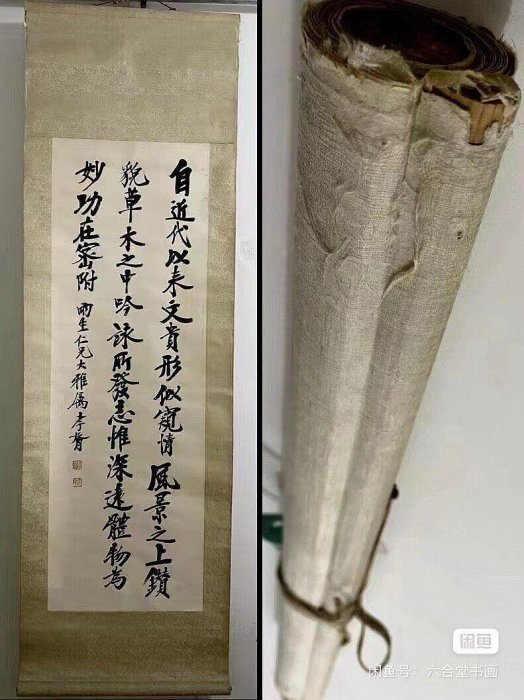 自近代以来文贵形似窥情風景之上鑽
貌草木之中吟詠所發志惟深遠體物為
妙功在密附
雨生仁兄大雅属孝胥
闲鱼
闲鱼号：六合堂书画